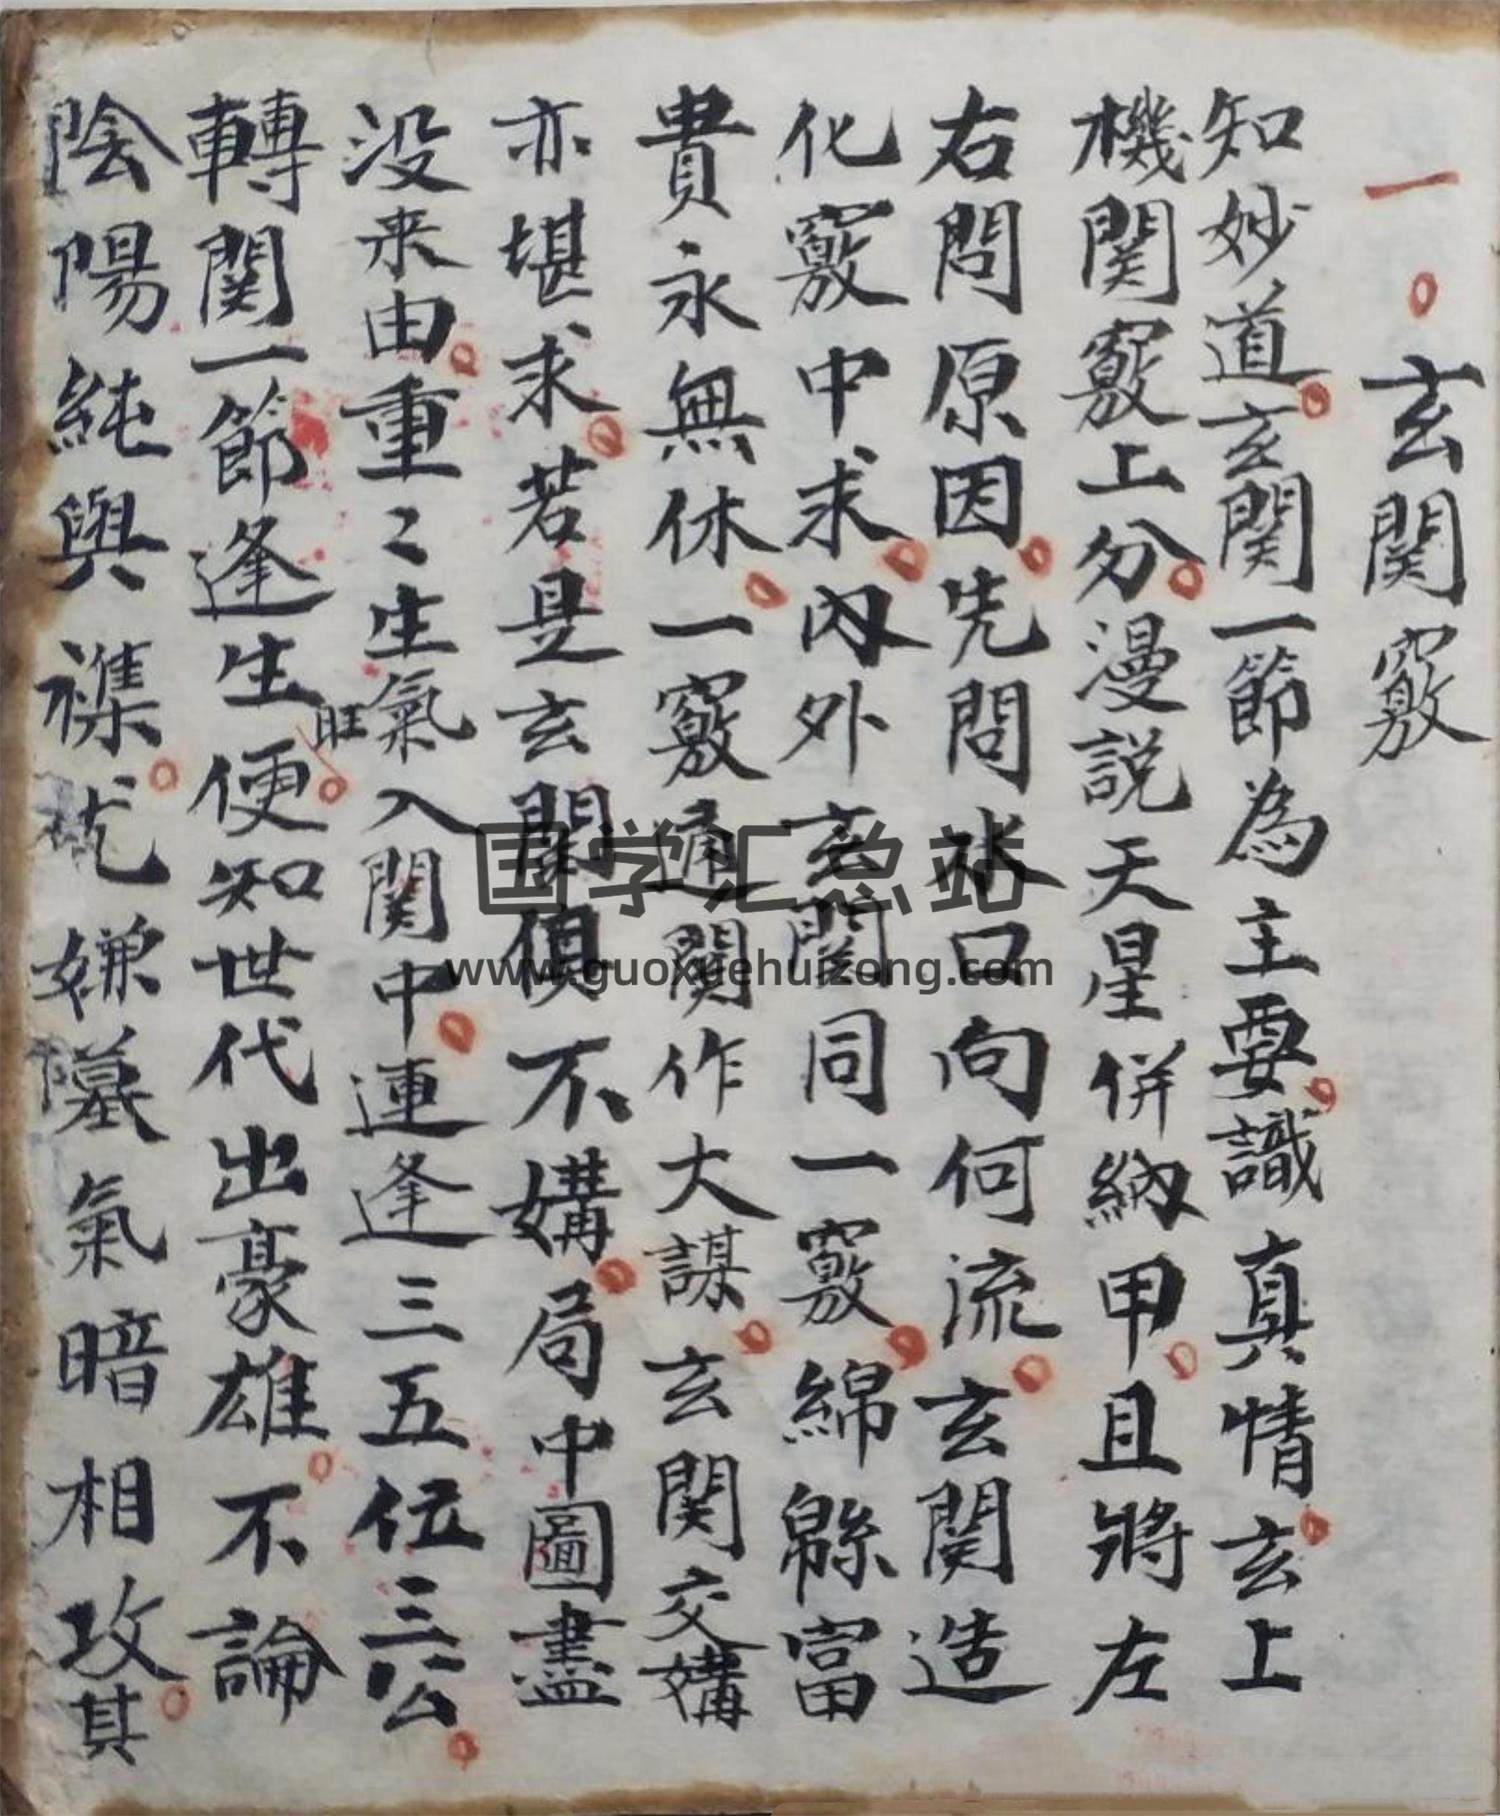 一 玄関竅
知妙道玄関一節為主要識真情玄上
機関竅上分漫説天星併納甲且將左
右問原因先問水口向何流玄関造
化竅中求内外玄関同一竅綿綿富
貴永無休一竅通関作大謀玄関交媾
亦堪求若是玄関俱不媾局中圖盡
没来由重〻生氣入関中連逢三五位三公
轉関一節逢生旺便知世代出豪雄不論
陰陽純與襍尤嫌墓氣暗相攻其
国学汇总站
www.guoxuehuizong.com